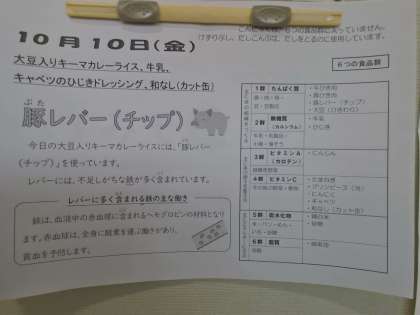 こんだてには、6つの食品群に入っていません。
けずりぶし、だしこんぶは、だしをとるのに使用しています。
10月10日(金)
大豆入りキーマカレーライス、牛乳、
キャベツのひじきドレッシング、和なし(カット缶)
6つの食品群
ぶた
豚レバー(チップ)
今日の大豆入りキーマカレーライスには、「豚レバー
(チップ)」を使っています。
レバーには、不足しがちな鉄が多く含まれています。
レバーに多く含まれる鉄の主な働き
鉄は、血液中の赤血球に含まれるヘモグロビンの材料となり
ます。赤血球は、全身に酸素を運ぶ働きがあり、
貧血を予防します。
1群 たんぱく質
・牛ひき肉
・豚ひき肉
・豚レバー(チップ)
・大豆(ひきわり)
2群 無機質
(カルシウム)
・牛乳
・ひじき
3群 ビタミンA
(カロテン)
・にんじん
4群 ビタミンC
その他の野菜・果物
・たまねぎ
・グリンピース(冷)
・にんにく
・キャベツ
・和なし(カット缶)
5群 炭水化物
・精白米
・砂糖
6群 脂質